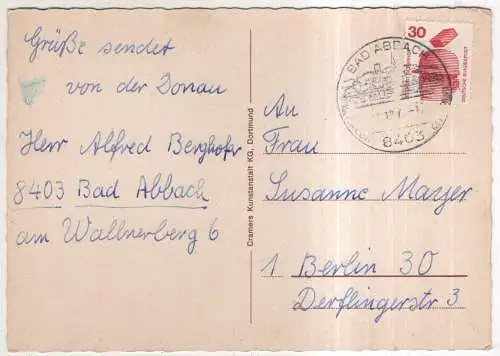 Grüße sendet
von der Donau
Herr Alfred Berghofer
8403 Bad Abbach
am Wallnerberg 6
Cramers Kunstanstalt KG, Dortmund
30
DEUTSCHE BUNDESPOST
BAD ABBACH
8403
An
Frau
Susanne Mayer
1 Berlin 30
Derflingerstr 3